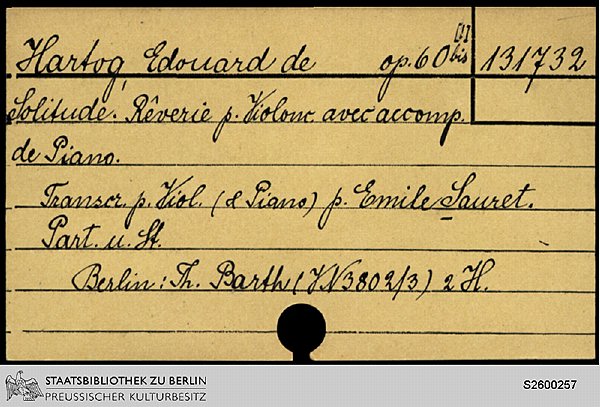 Hartog, Edouard de op. 60 bis [1] 131732
Solitude. Rêverie p. Violonc. avec accomp.
de Piano.
Transcr. p. Viol. (& Piano) p. Emile Sauret.
Part. u. St.
Berlin: Th. Barth (VN 3802/3) 2 H.
STAATSBIBLIOTHEK ZU BERLIN
PREUSSISCHER KULTURBESITZ
S2600257